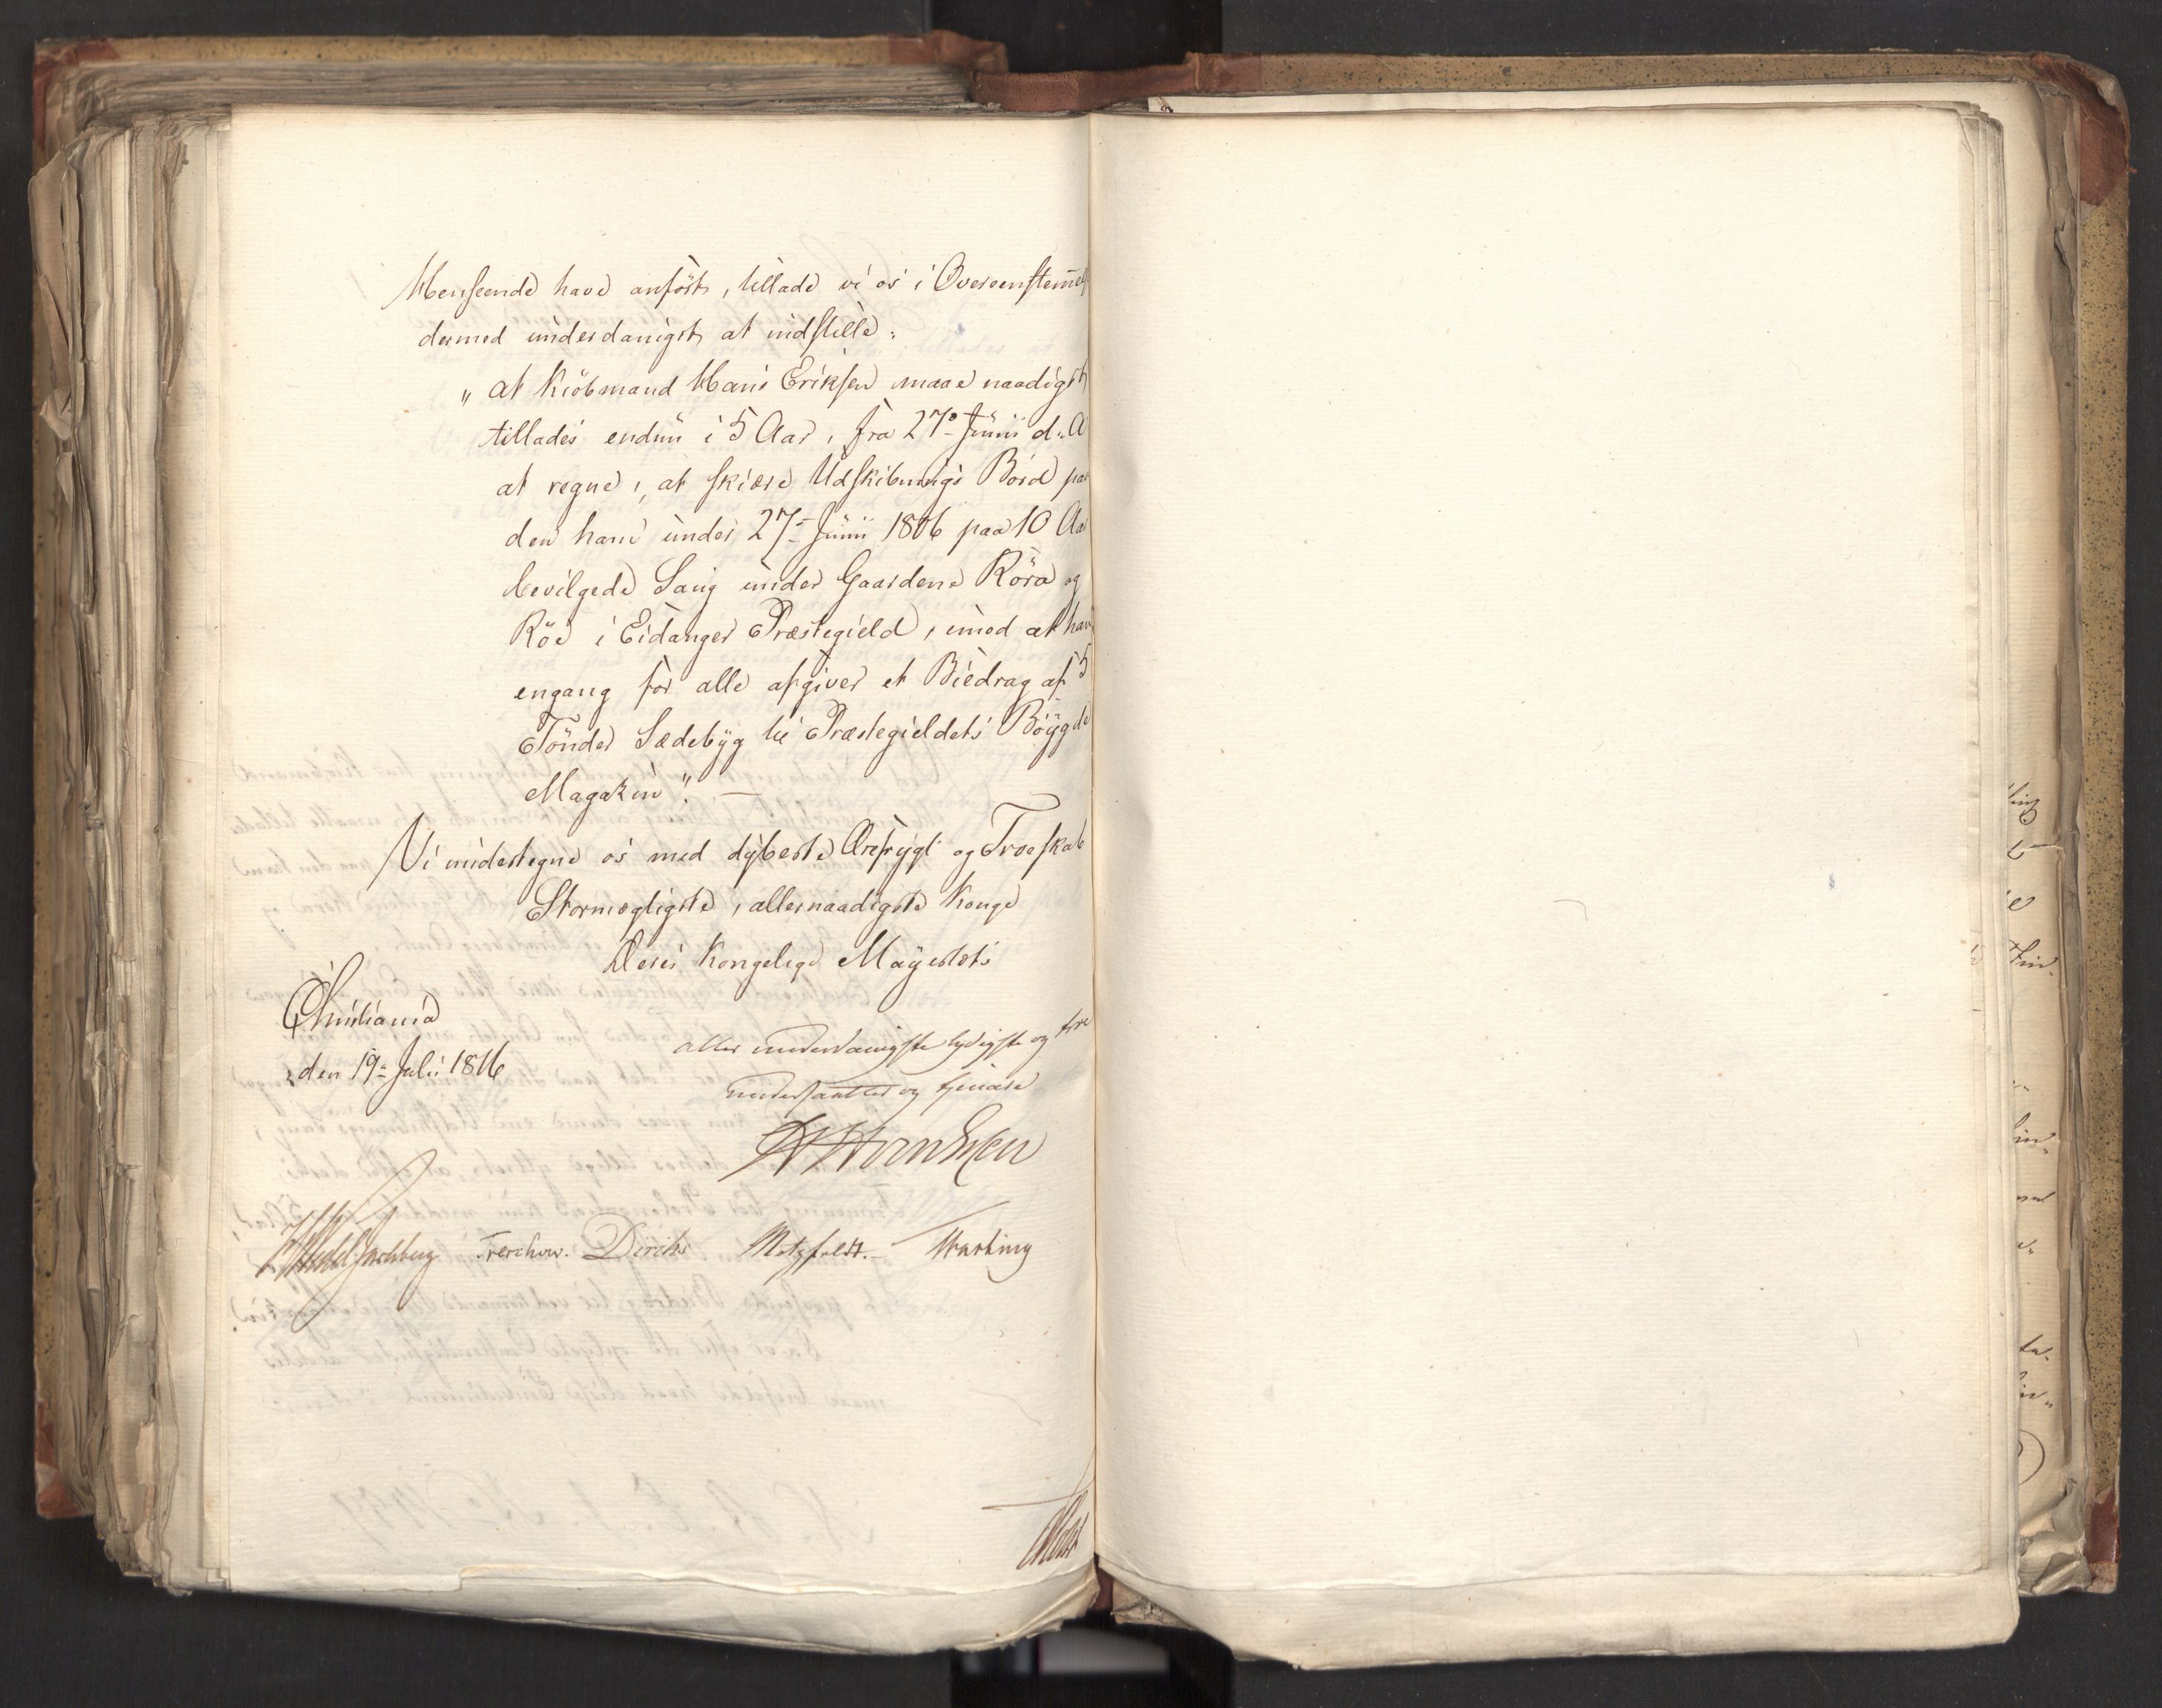 Henseende have anført, tillade vi os i Overeenstem̅els
dermed underdanigst at indstille:
„at Kiöbmand Hans Eriksen maae naadigst
tillades endnu i 5 Aar, fra 27de Junii d. A
at regne, at skiære Udskibnings Bord paa
den ham under 27de Junii 1806 paa 10 Aar
bevilgede Saug under Gaardene Röra og
Röe i Eidanger Præstegield, imod at han
engang for alle afgiver et Biedrag af 5
Tönder Sædebÿg til Præstegieldets Böÿgde
Magazin“. —
Vi undertegne os med dÿbeste Ærefrÿgt og Troeskab
Stormægtigste, allernaadigste Konge
Deres Kongelige Maÿestæts
Christiania
den 19de Juli 1816
aller underdanigste lydigste og troe
undersaatter og tjenere
Hornsken
Wedel Jarlsberg Treschow. Diriks Motzfeldt. —